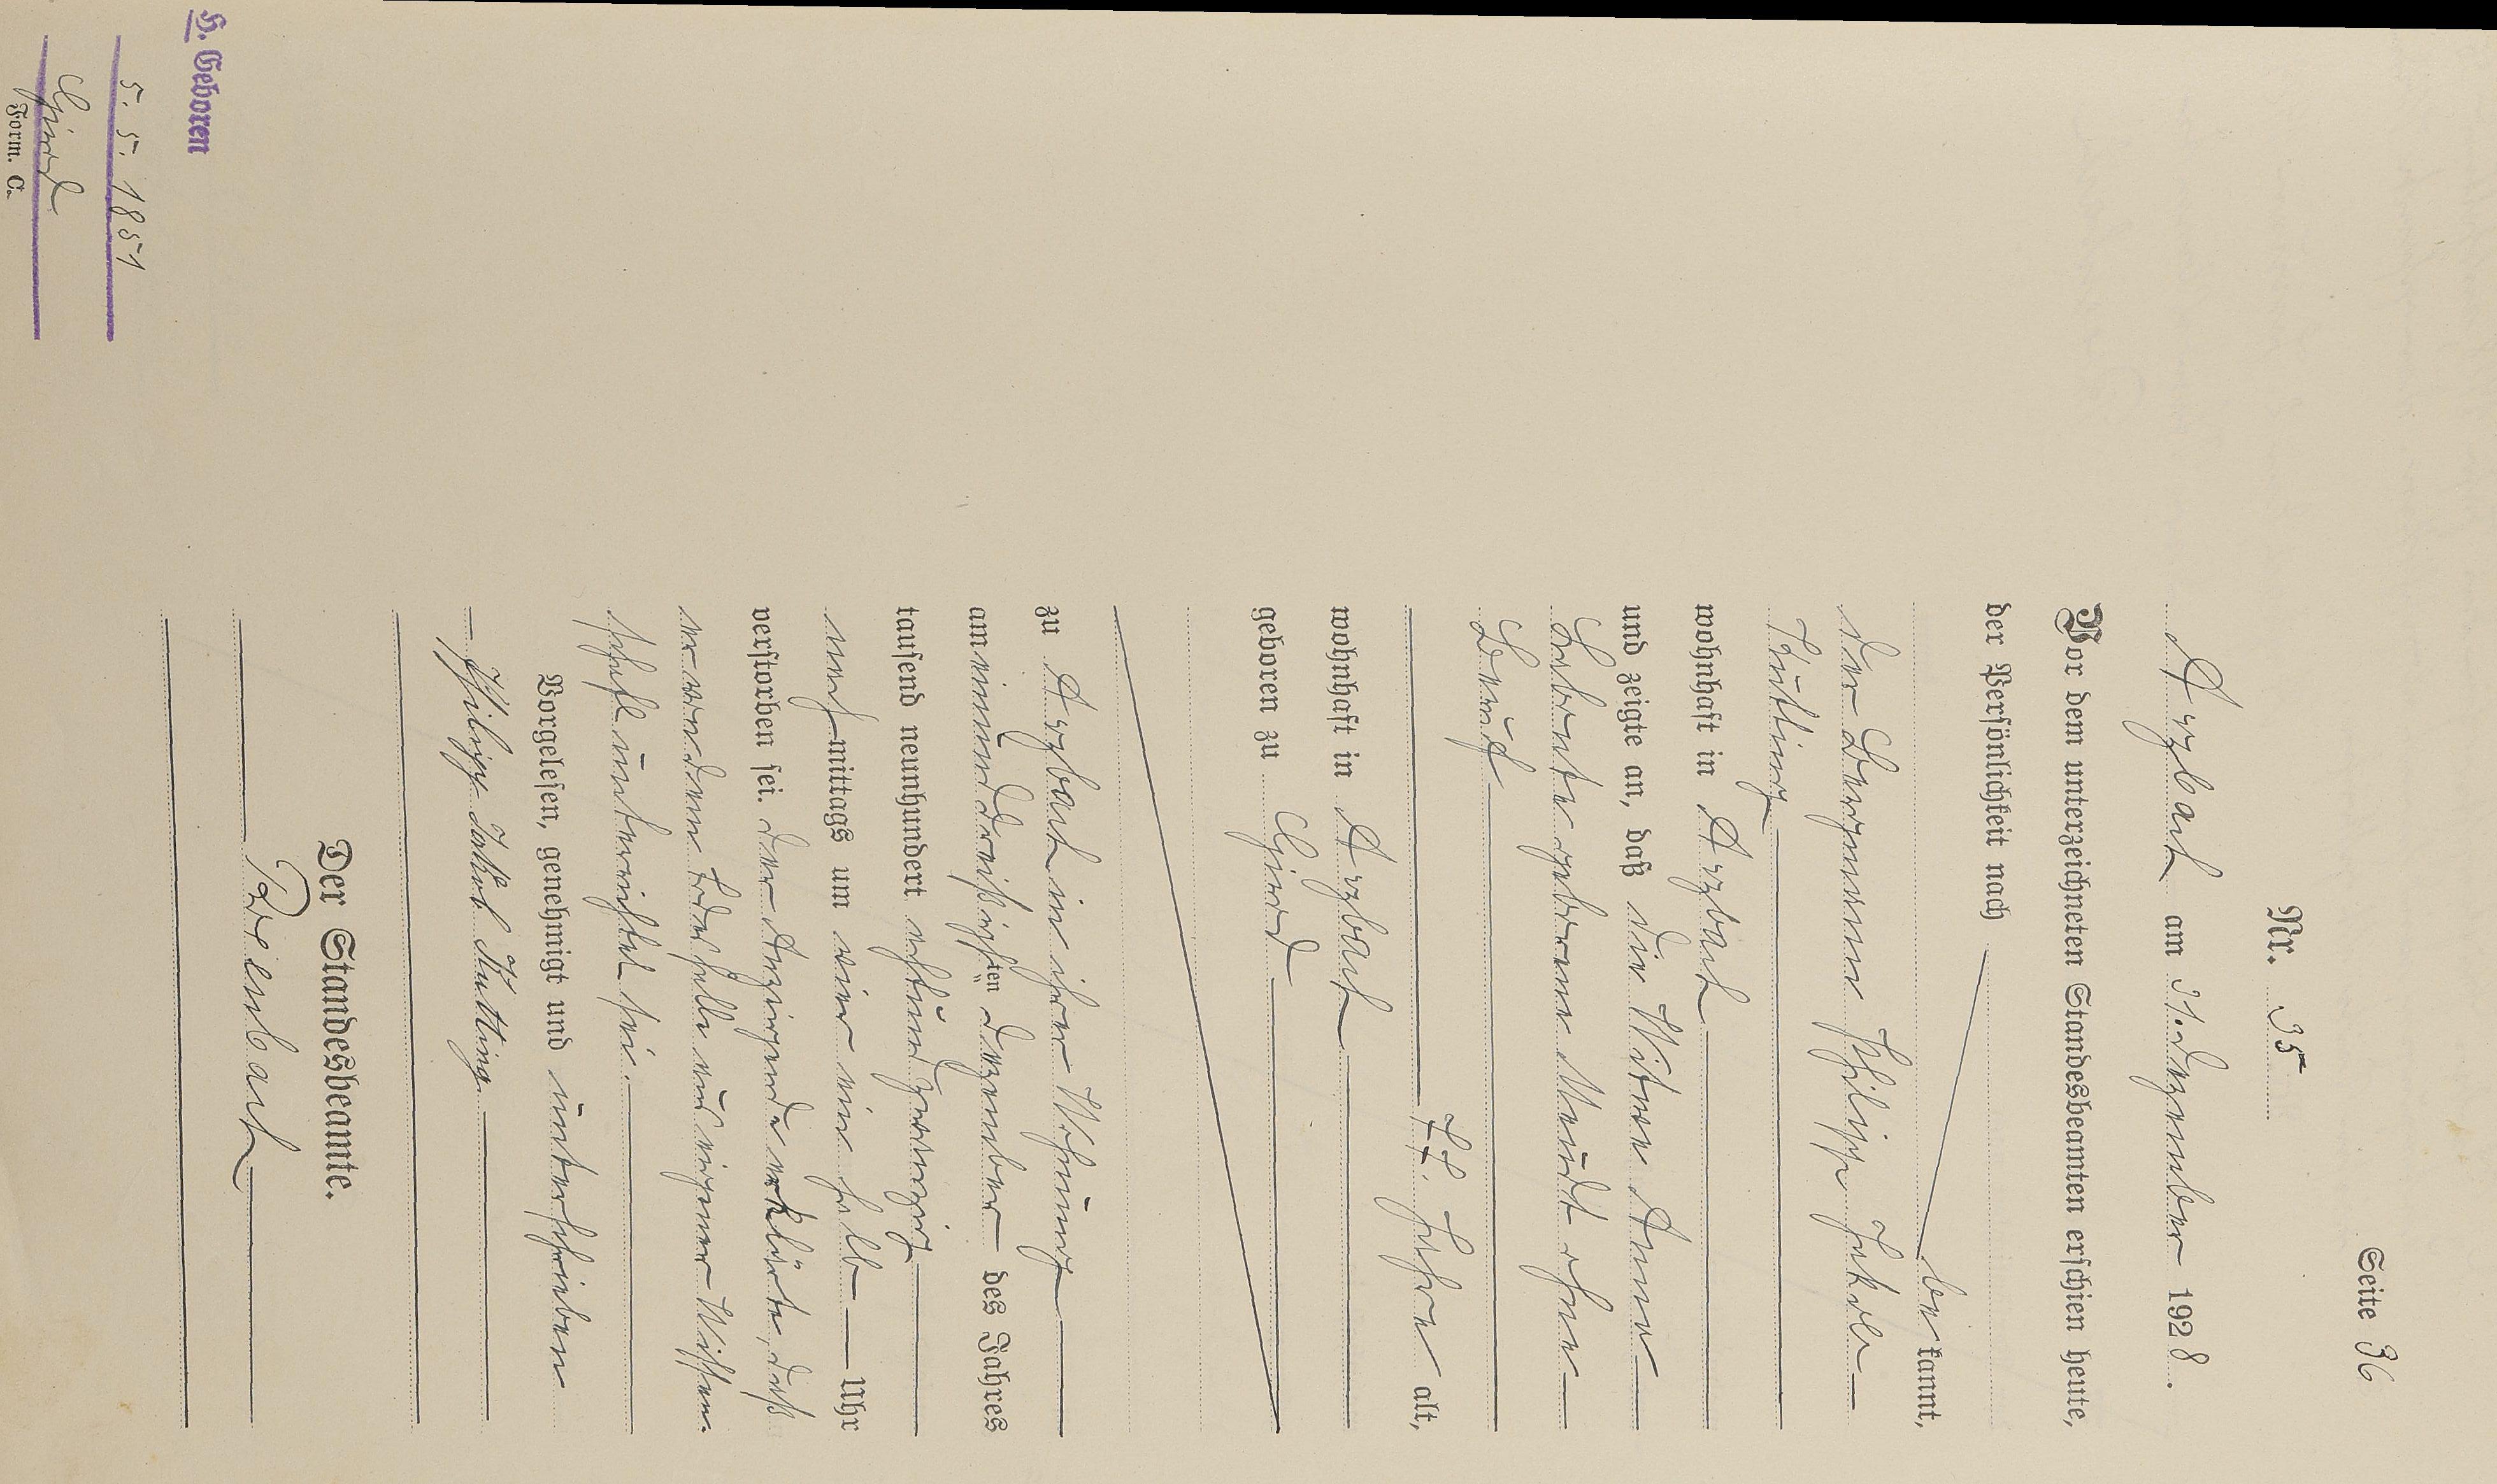 Seite 36
Nr. 35
Arzbach am 31. Dezember 1928.
Vor dem unterzeichneten Standesbeamten erschien heute,
der Persönlichkeit nach
be kannt,
der Bergmann Philipp Jakob
wohnhaft in Arzbach
und zeigte an, daß die Witwe Anna
geborene ohne
Beruf
77 Jahre alt,
wohnhaft in Arzbach
geboren zu
zu Arzbach in ihrer Wohnung
am einunddreißigsten Dezember des Jahres
tausend neunhundert achtundzwanzig
nach mittags um ein halb Uhr
verstorben sei. Der Anzeigende erklärte, daß
er von dem Todesfalle aus eigener Wissen-
schaft unterrichtet sei.
Vorgelesen, genehmigt und unterschrieben
Philipp Jakob
Der Standesbeamte.
H. Geboren
5. 5. 1851
Form. C.